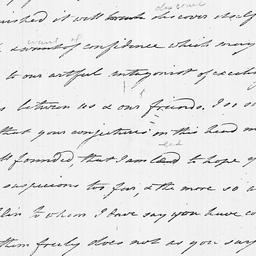 discover
nished it will discover itself
want of
a want of confidence which may
to our artful antagonist of excitin
s between us & our friends. I so so
that your conjectures in this head m
ll founded, that I am led to hope y
led
suspicions too far, & the more so a
lin to whom I have say you have co
them freely does not as you say